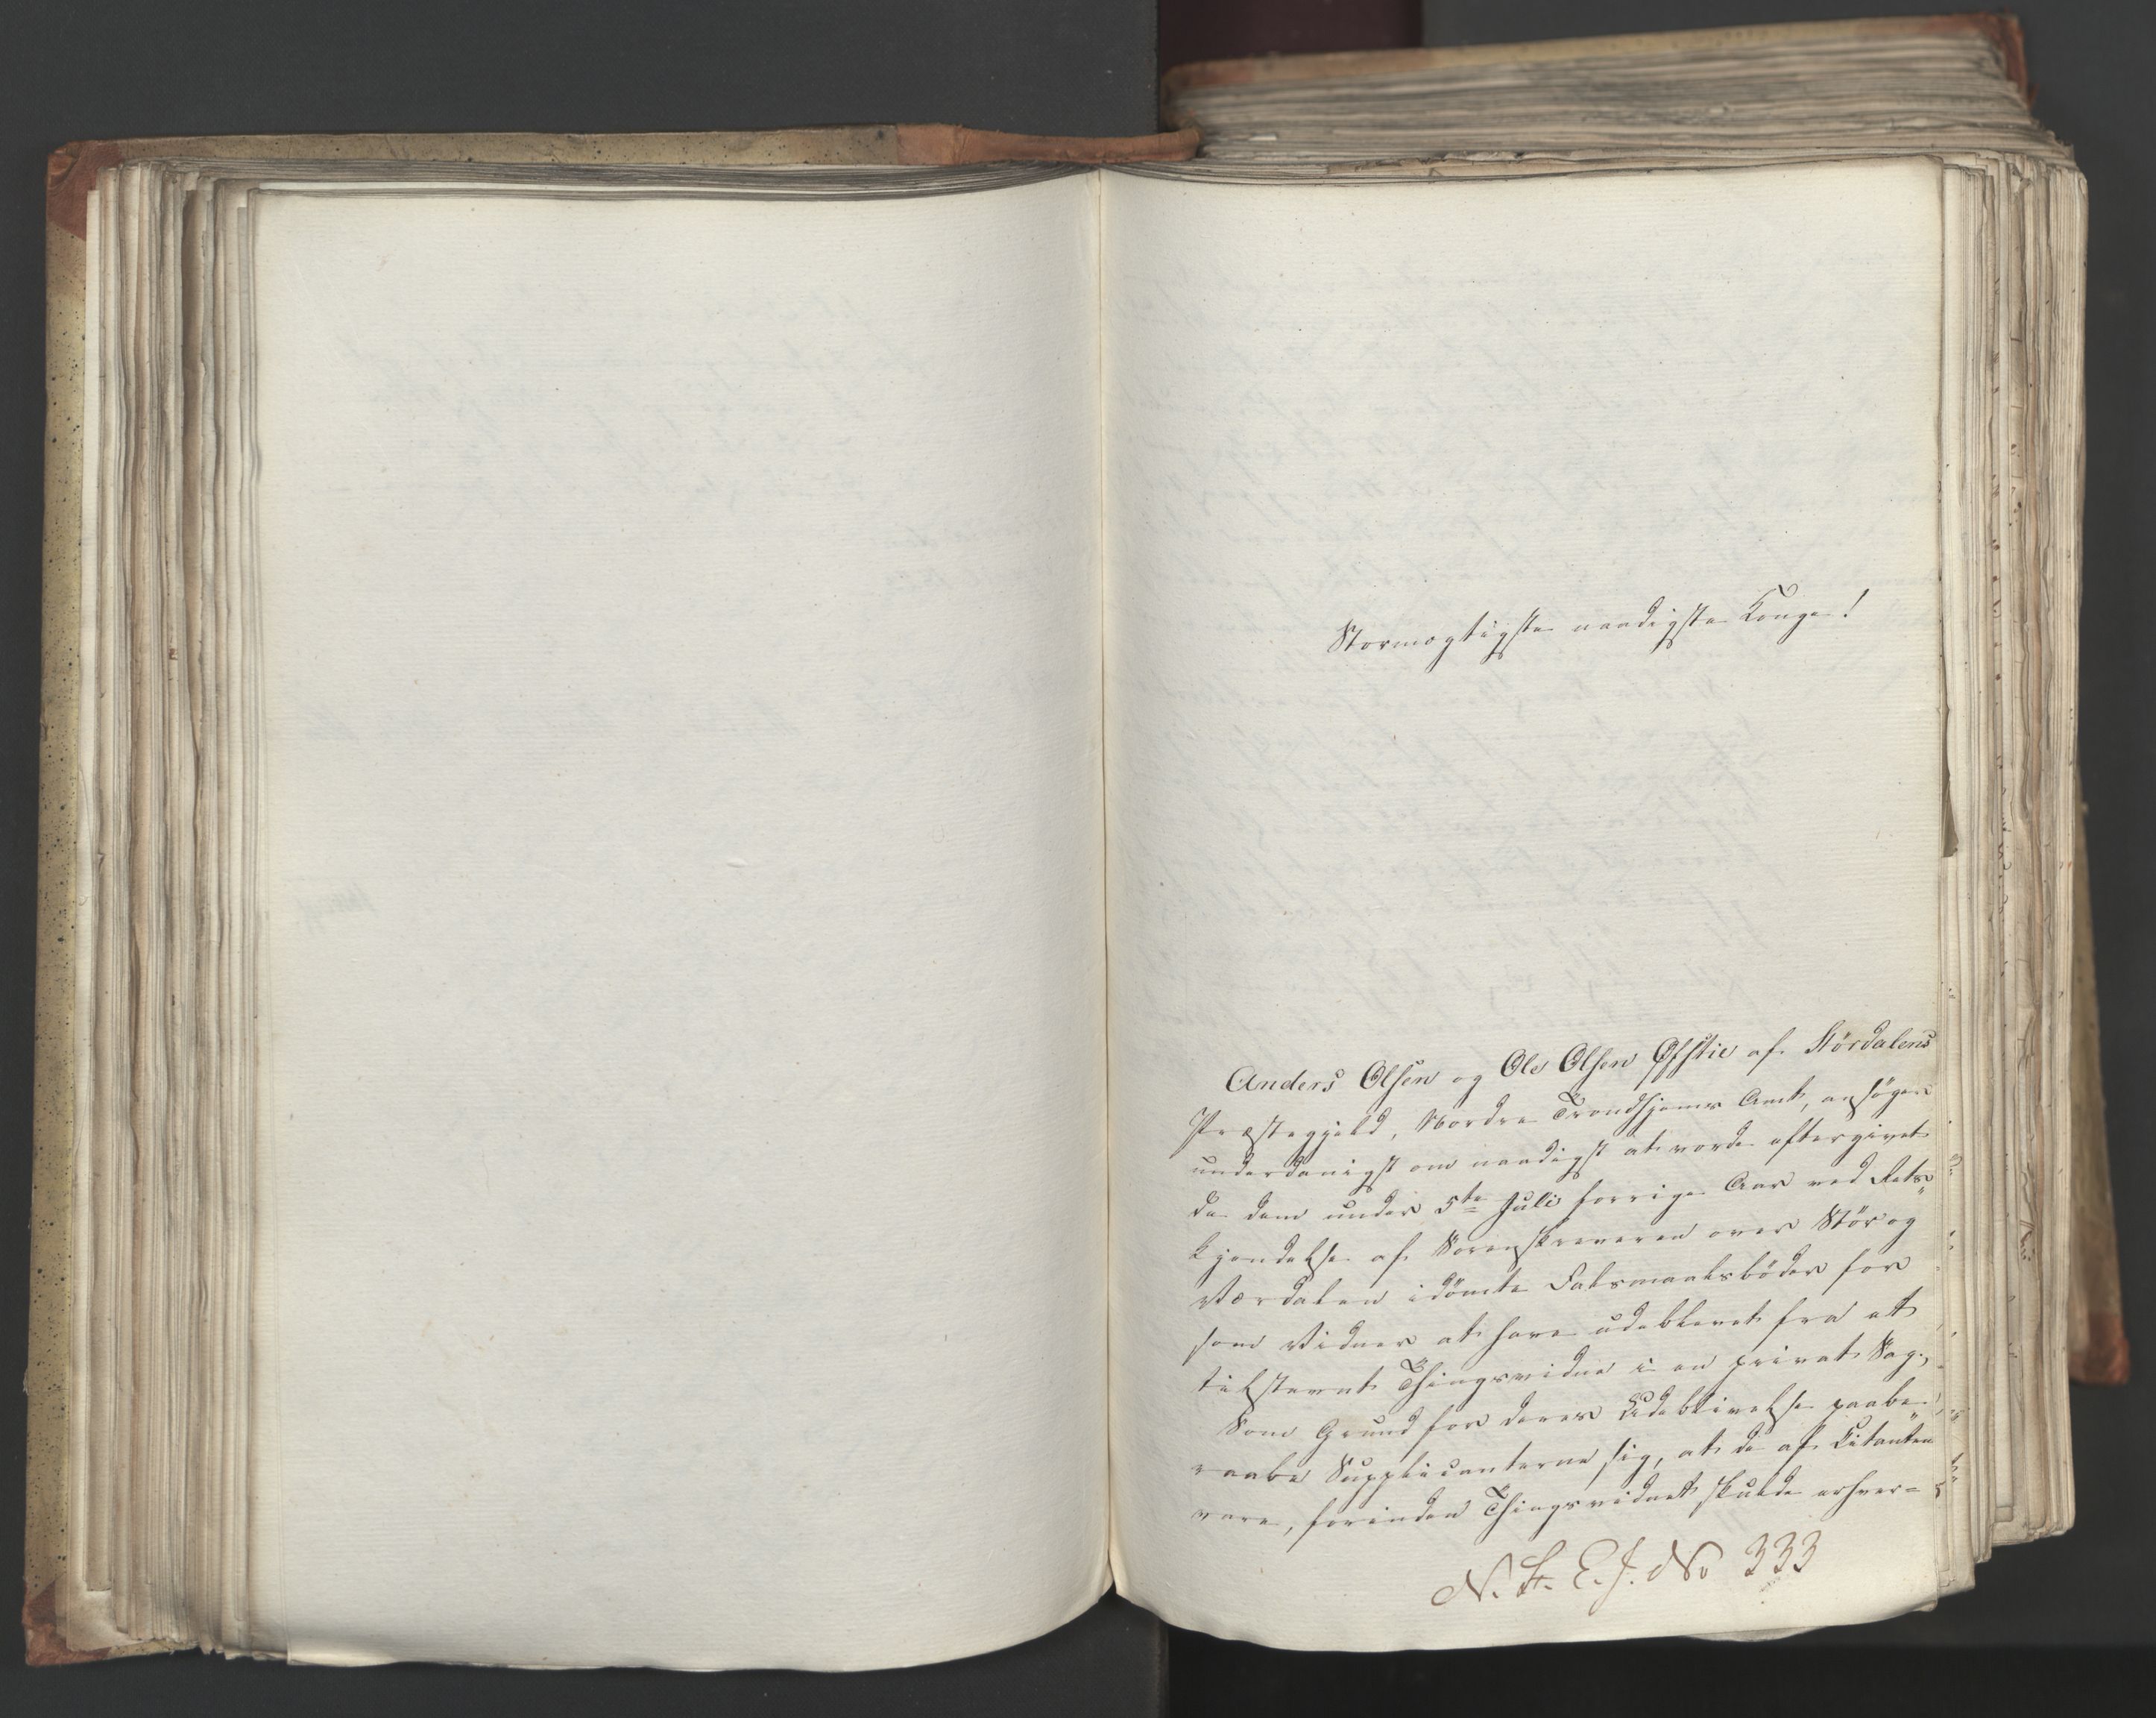 Stormægtigste naadigste Konge!
Anders Olsen og Ole Olsen Øfstie af Størdalens
Præstegjeld, Nordre Trondhjems Amt, ansøger
underdanigst om naadigst at vorde eftergivet
de dem under 5te Juli forrige Aar ved Rets-
kjendelse af Sorenskriveren over Stør og
Værdalen idømte Falsmaalsbøder for
som Vidner at have udeblevet fra et
tilstevnt Thingsvidne i en privat Sag.,
Som Grund for deres Udeblivelse paabe-
raabe Supplicanterne sig, at de af Citanten
vare, forinden Thingsvidnet skulde erhver=
N. St. E. J. No 333